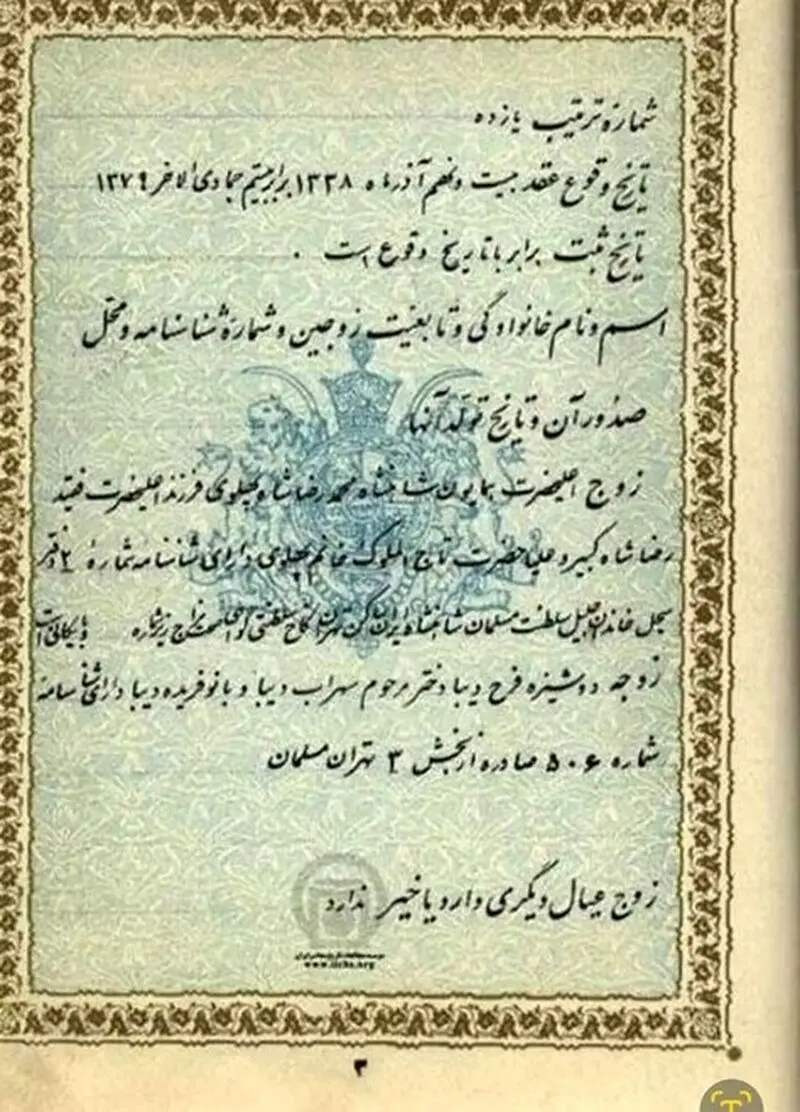 شمارهٔ ترتیب یازده
تاریخ وقوع عقد بیست و نهم آذرماه ۱۳۳۸ برابر بیستم جمادی الاخر ۱۳۷۹
تاریخ ثبت برابر با تاریخ وقوع است .
اسم و نام خانوادگی و تابعیت زوجین و شمارهٔ شناسنامه و محل
صدور آن و تاریخ تولد آنها
زوج اعلیحضرت همایون شاهنشاه محمد رضا شاه پهلوی فرزند اعلیحضرت فقید
رضا شاه کبیر و علیاحضرت تاج الملوک خانم پهلوی دارای شناسنامه شمارهٔ ۲ دفتر
سجل خاندان جلیل سلطنت مسلمان شاهنشاه ایران ساکن تهران کاخ سلطنتی
زوجه دوشیزه فرح دیبا دختر مرحوم سهراب دیبا و بانو فریده دیبا دارای شناسنامه
شماره ۵۰۶ صادره از بخش ۳ تهران مسلمان
زوج عیال دیگری دارد یا خیر ندارد
www.iichs.org
۳